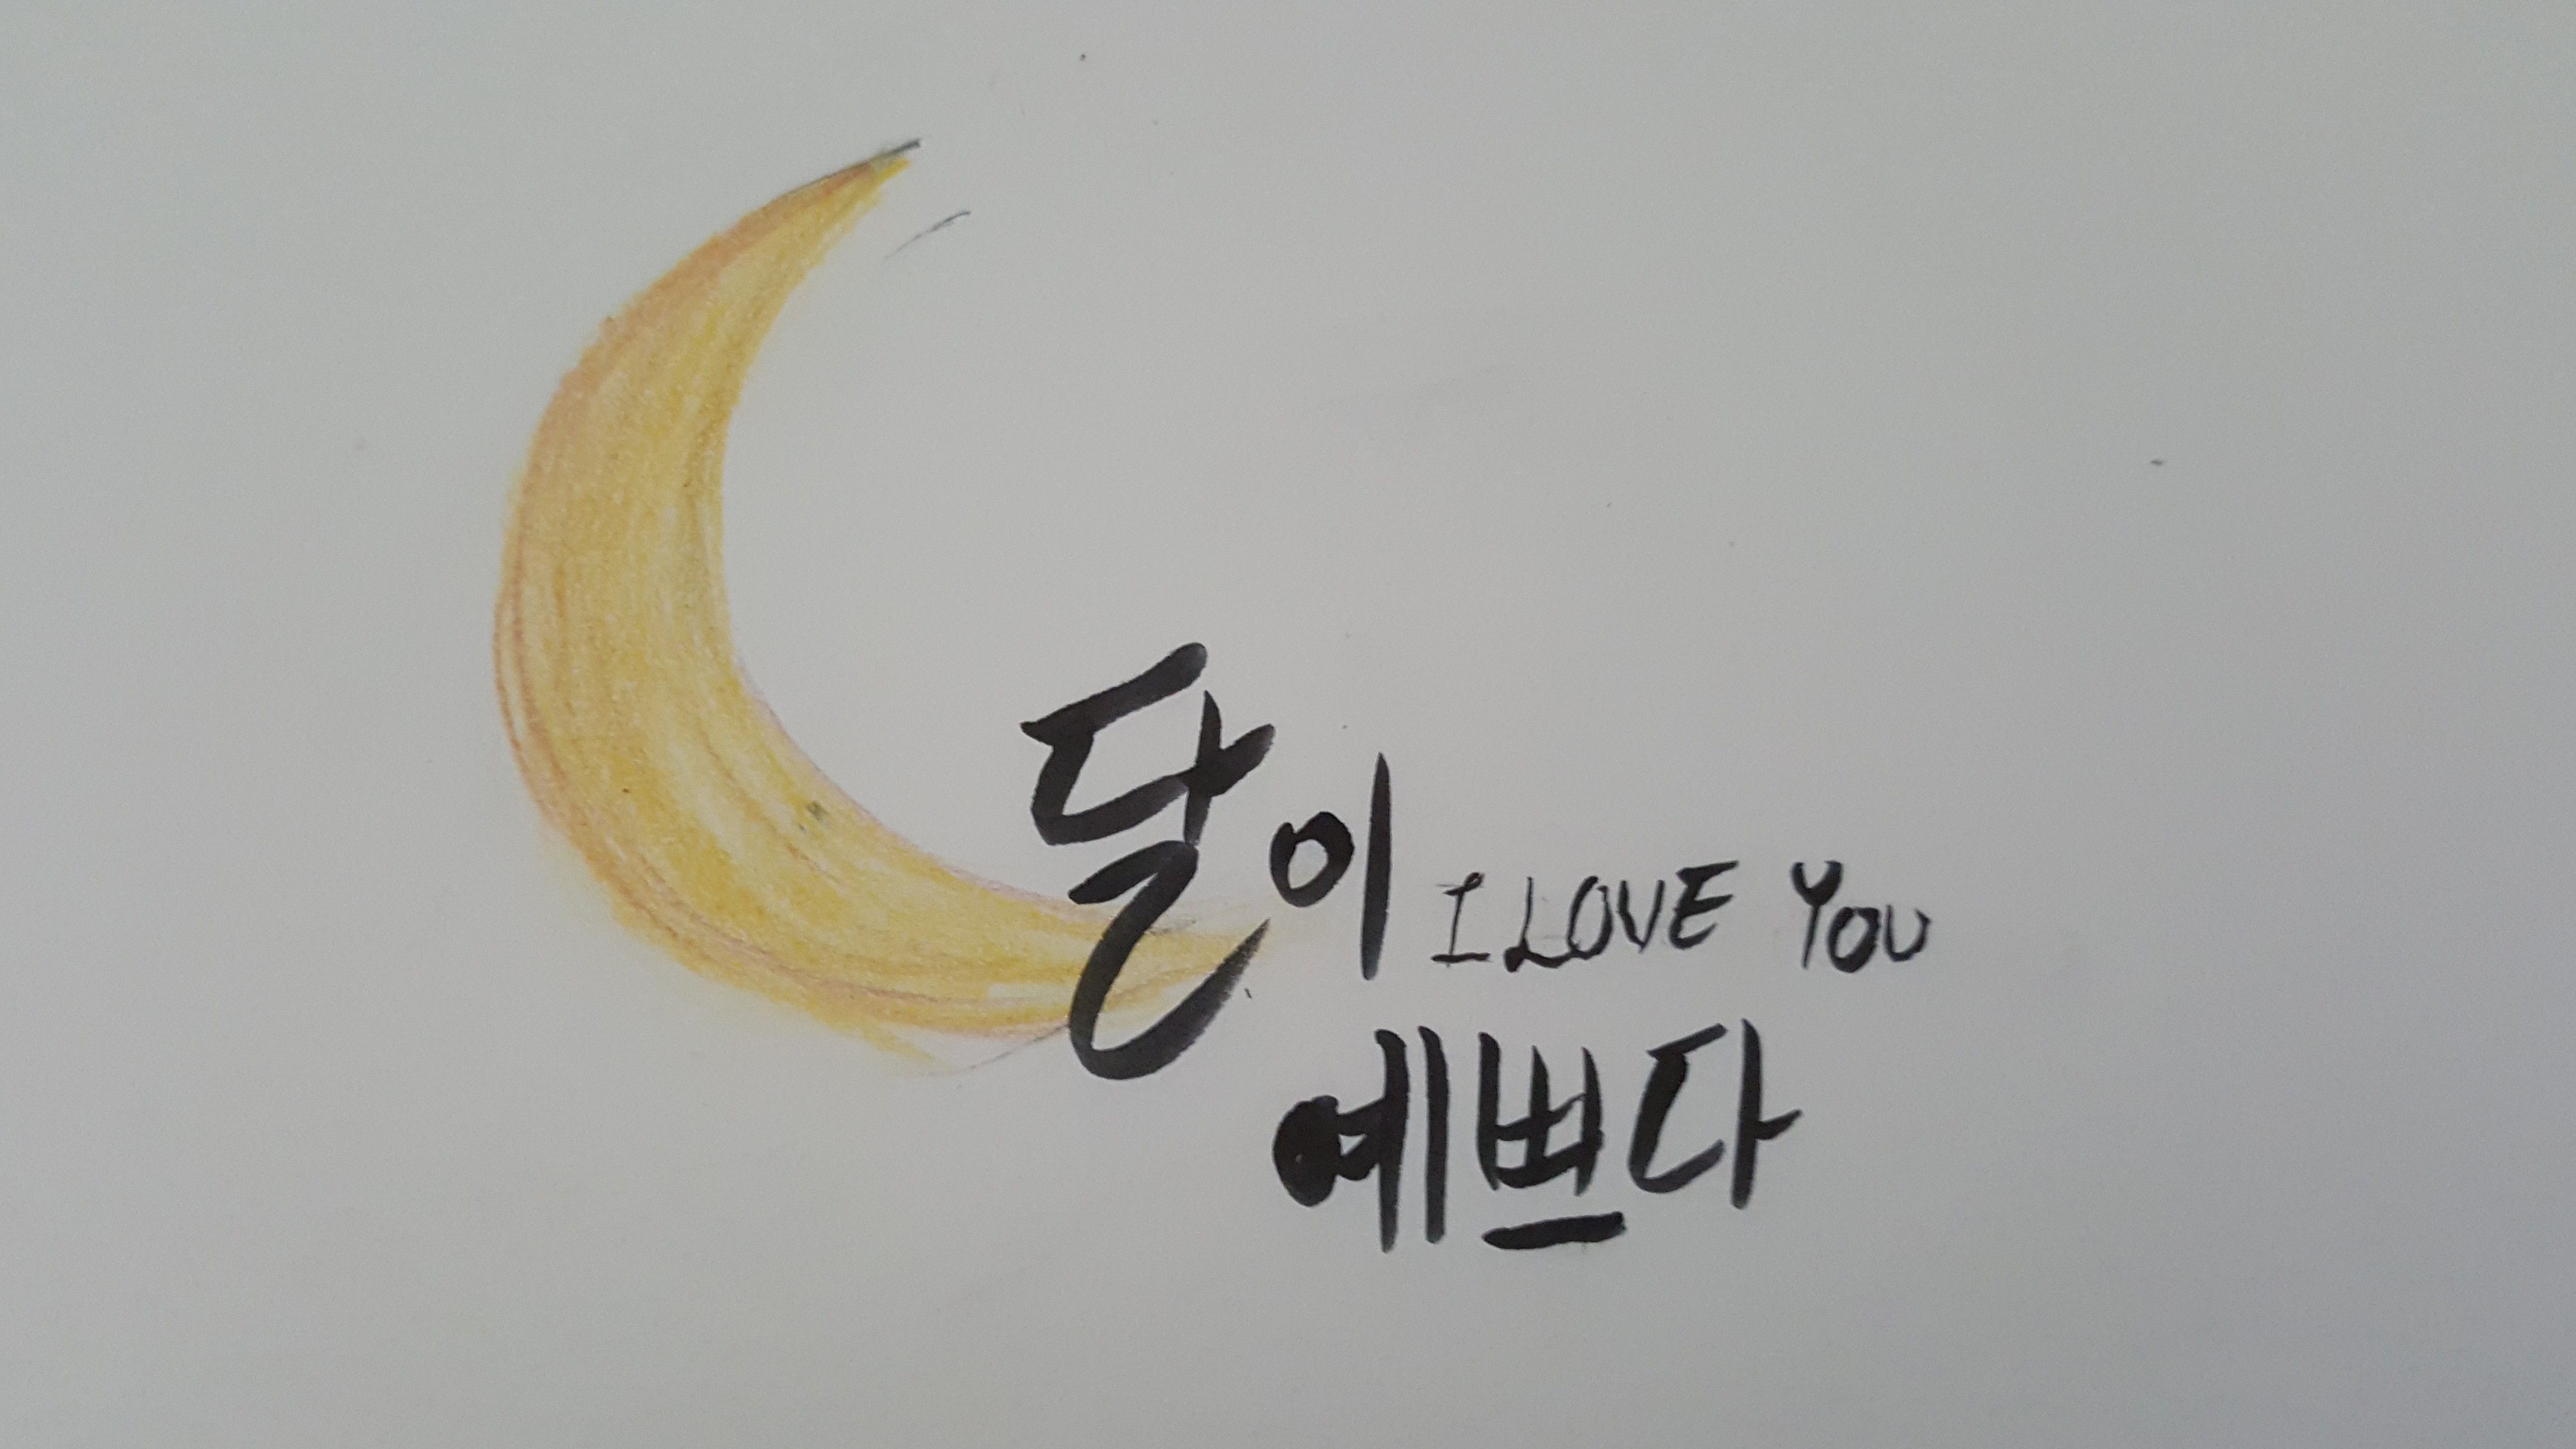 달이 I LOVE YOU
예쁘다